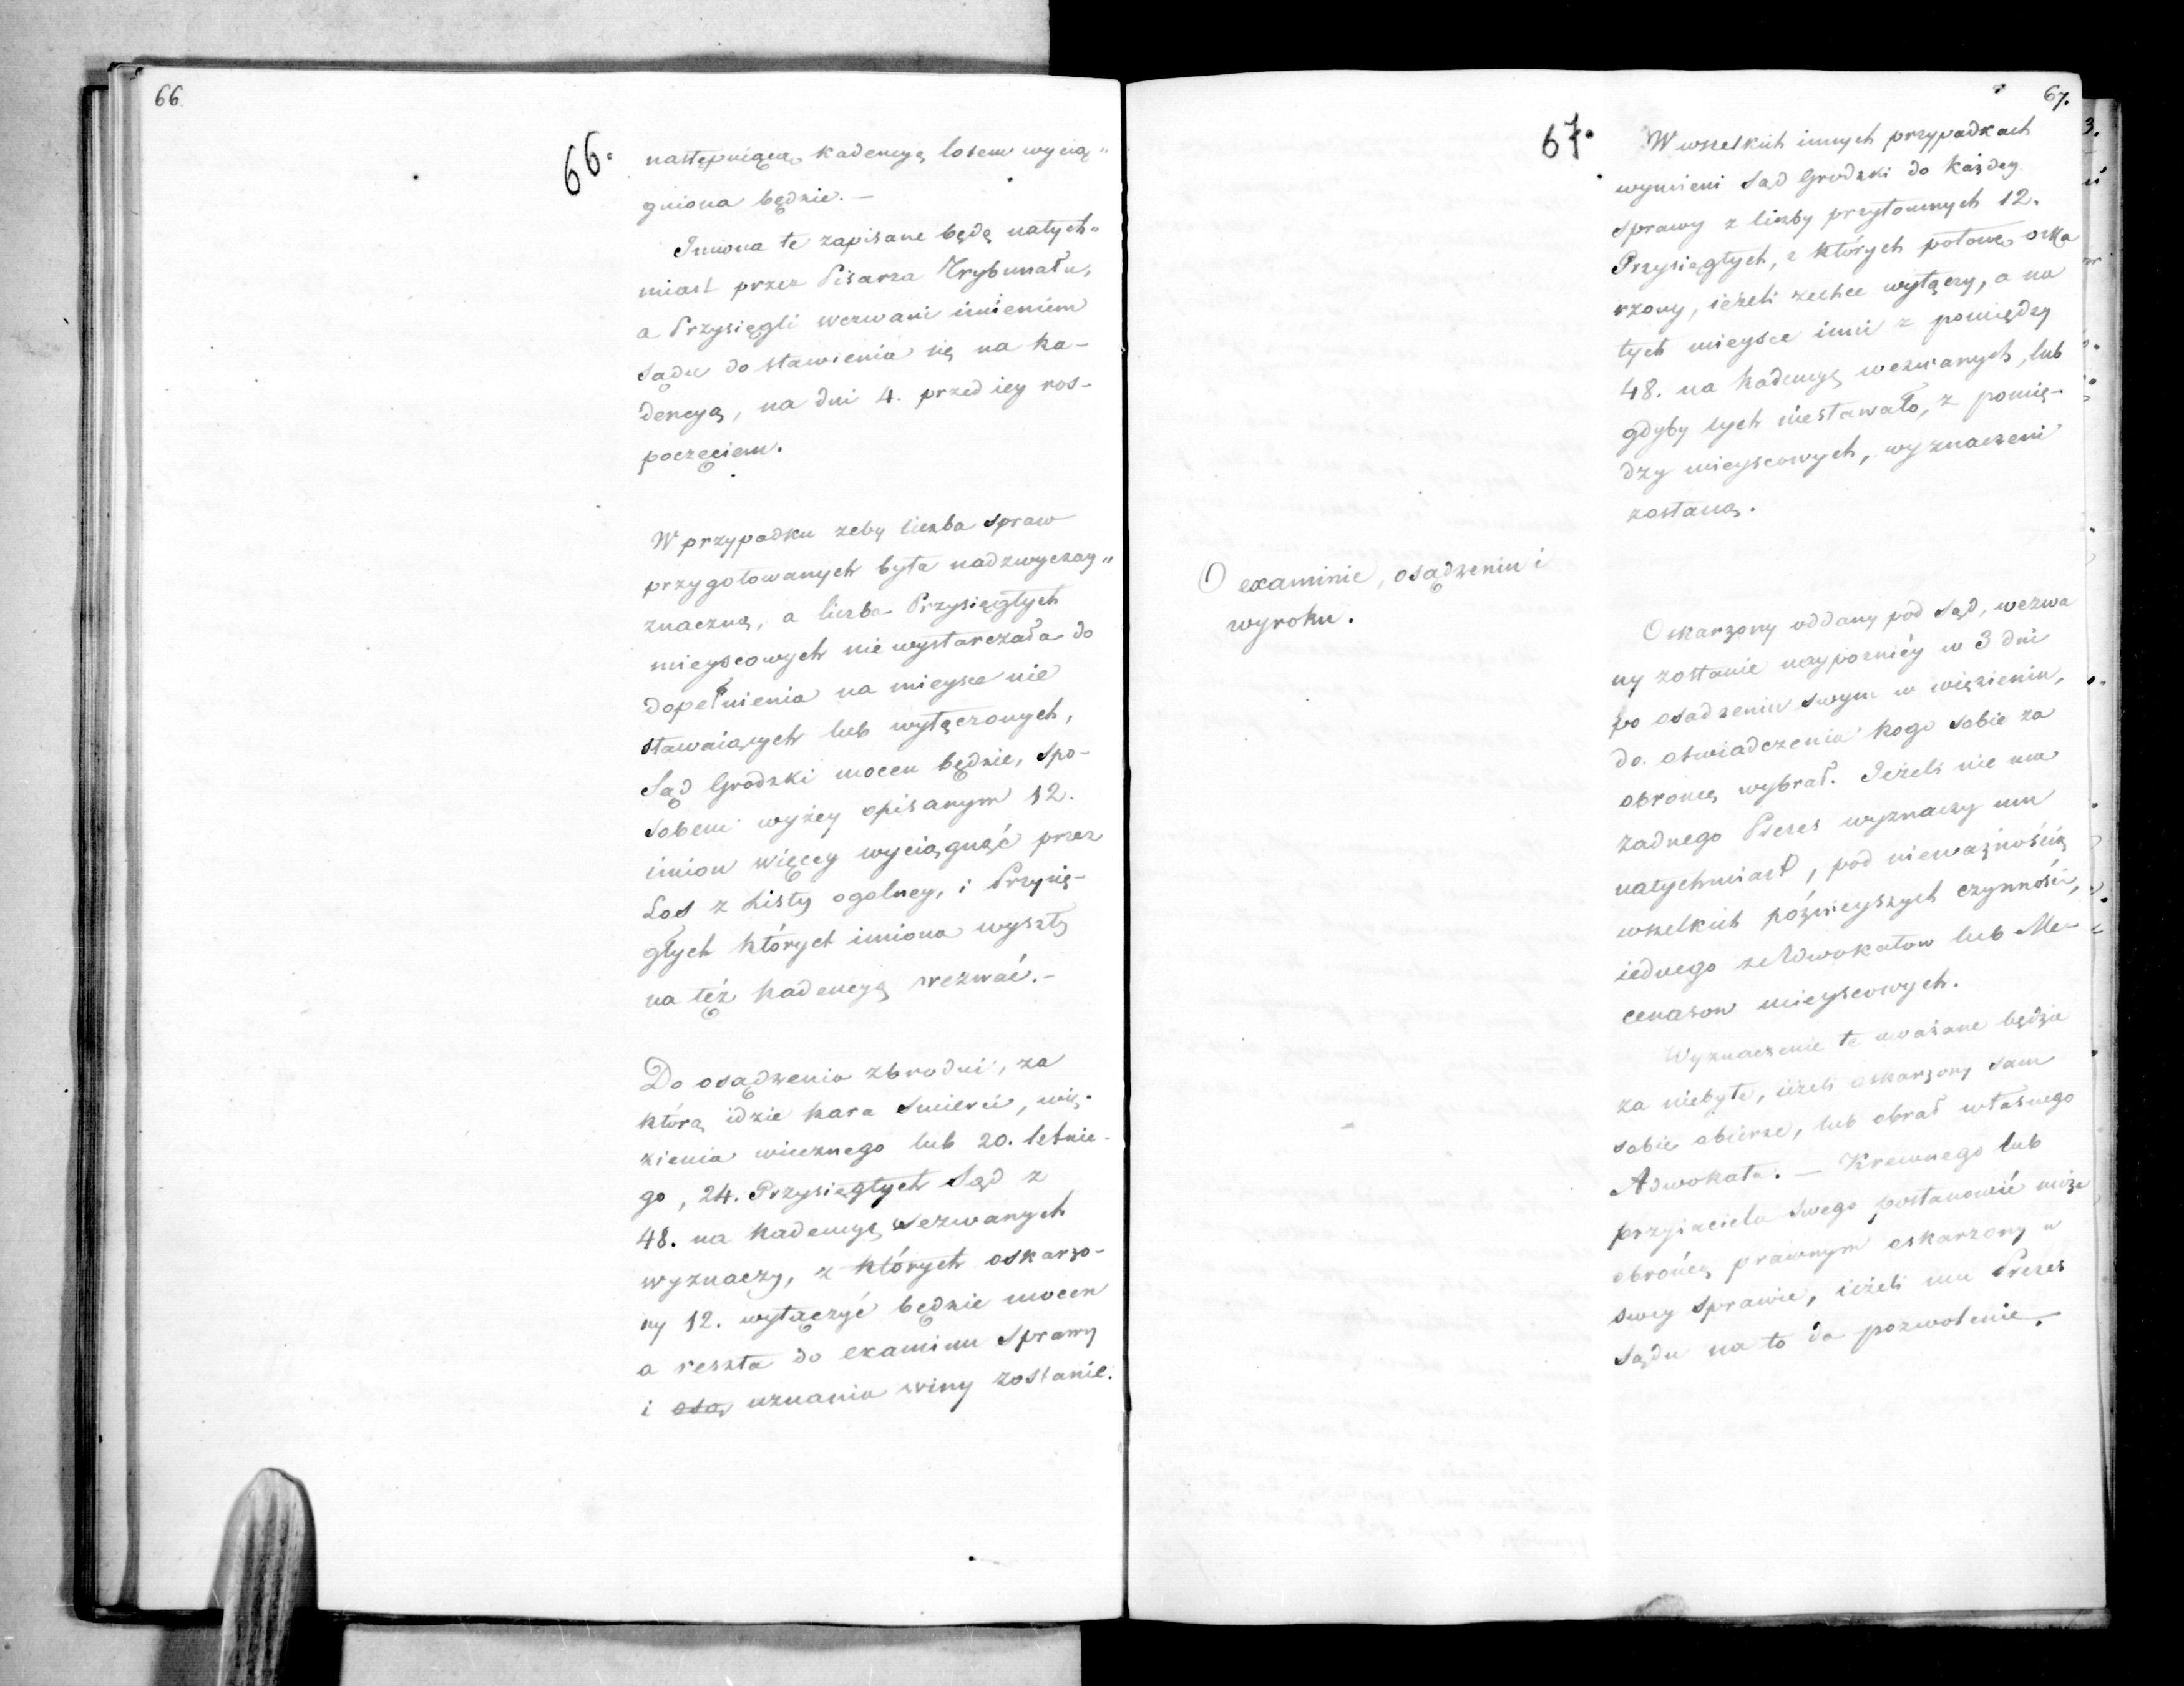 66
66.
następuiącą kadencyą losem wycią„
gniona będzie. —
Imiona te zapisane będą natych„
miast przez Pisarza Trybunału,
a Przysięgli wezwani imieniem
Sądu do stawienia się na ka-
dencyą, na dni 4. przed iey ros-
poczęciem.
W przypadku zeby liczba spraw
przygotowanych była nadzwyczay„
znaczną, a liczba Przysięgłych
mieyscowych nie wystarczała do
dopełnienia na mieysce nie
stawaiących lub wyłączonych,
Sąd Grodzki mocen będzie, spo-
sobem wyżey opisanym 12.
imion więcey wyciągnąć przez
Los z Listy ogolney, i Przysię-
głych których imiona wyszły
na też kadencyą wezwać. -
Do osądzenia zbrodni, za
którą idzie kara Smierci, wię-
zienia wiecznego lub 20. letnie-
go, 24. Przysięgłych Sąd z
48. na kadencyą wezwanych
wyznaczy, z których oskarżo-
ny 12. wyłączyć będzie mocen
a reszta do examinu Sprawy
i osą uznania winy zostanie.
67.
67.
W wszelkich innych przypadkach
wymieni Sąd Grodzki do każdey
sprawy z liczby przytomnych 12.
Przysięgłych, z których połowę oska
rzony, ieżeli zechce wyłączy, a na
tych mieysce inni z pomiędzy
48. na kadencyą wezwanych, lub
gdyby tych niestawało, z pomię-
dzy mieyscowych, wyznaczeni
zostaną.
O examinie, osądzeniu i
wyroku.
Oskarżony oddany pod Sąd, wezwa
ny zostanie naypoźniéy w 3 dni
po osadzeniu swym w więzieniu,
do oświadczenia kogo sobie za
obroncę wybrał. Ieżeli nie ma
żadnego Prezes wyznaczy mu
natychmiast, pod nieważnością
wszelkich póżnieyszych czynności,
iednego z Adwokatow lub Me-
cenasow mieyscowych.
Wyznaczenie te uważane będzie
za niebyłe, ieżeli oskarżony sam
sobie obierze, lub obrał własnego
Adwokata. — Krewnego lub
przyiaciela swego postanowić może
obrońcą prawnym oskarżony w
swey sprawie, ieżeli mu Prezes
Sądu na to da pozwolenie. —